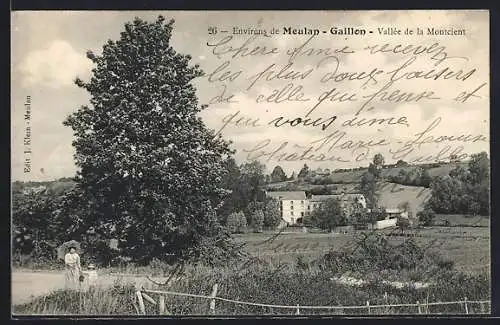 26 - Environs de Meulan - Gaillon - Vallée de la Montcient
Chère Amie recevez
les plus doux baisers
de celle qui pense et
qui vous aime
Marie Louise
Edit. J. Klein - Meulan